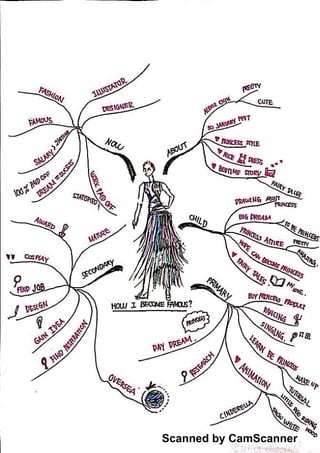 NOW
ILLUSTRATOR
DESIGNER
FASHION
FAMOUS
SALARY > 200000
100% PAID OFF
DREAM SUCCESS
WORK PAID OFF
STATISFIED
ABOUT
PRETTY
CUTE
30 JANUARY 1997
PRINCESS STYLE
NICE DRESS
BEDTIME STORY
FAIRY TALES
CHILD
DRAWING
PRINCESS
BIG DREAM
TO BE PRINCESS
PRINCESS ATTIRE
PRETTY
AMAZING
HOPE CAN BECOME PRINCESS
FAIRY TALES
MY LOVE
PRIMARY
BUY PRINCESS PRODUCT
DANCING
SINGING
LEARN BE PRINCESS
MAKE UP
TUTORIAL
ANIMATION
LITTLE RED RIDING HOOD
SNOW WHITE
CINDERELLA
RESEARCH
DAY DREAM
PRINCESS
HOW I BECOME FAMOUS?
SECONDARY
MATURE
AWARD
COSPLAY
FIND JOB
DESIGN
GAIN IDEA
FIND INSPIRATION
OVERSEA
Scanned by CamScanner